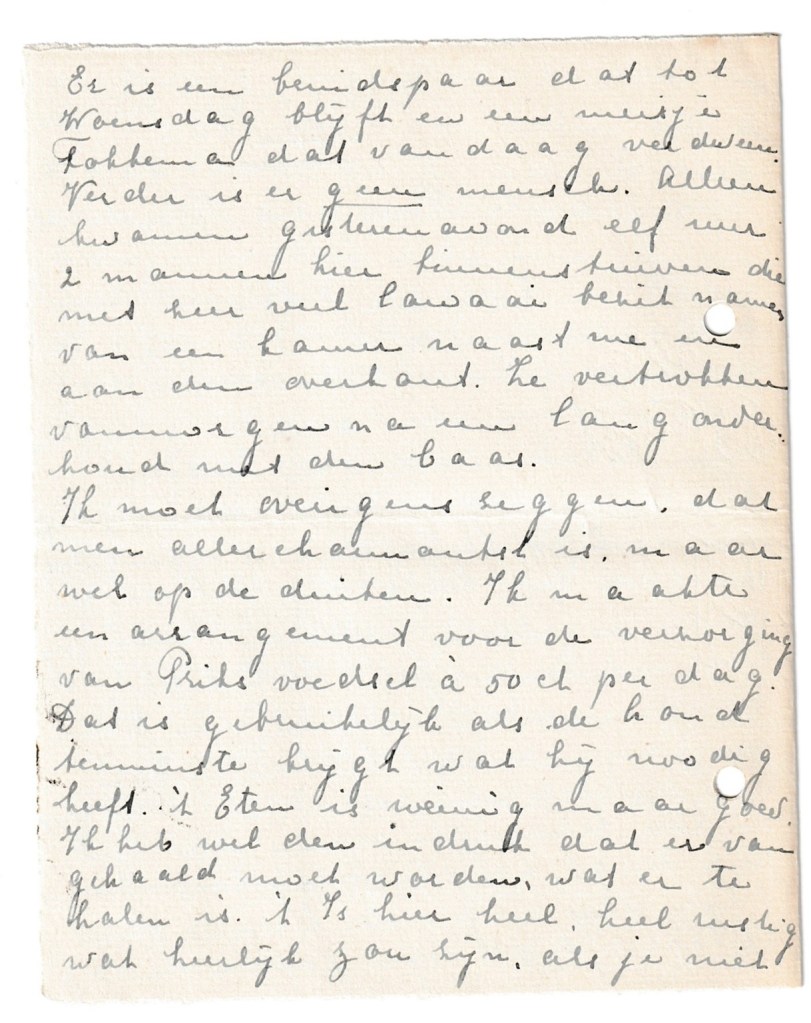 Er is een bruidspaar dat tot
Woensdag blijft en een meisje
Fokkema dat vandaag verdween.
Verder is er geen mensch. Alleen
kwamen gisterenavond elf uur
2 mannen hier binnenstuiven die
met heel veel lawaai bezit namen
van een kamer naast me en
aan den overkant. Ze vertrokken
vanmorgen na een lang onder-
houd met den baas.
Ik moet overigens zeggen, dat
men allercharmantst is, maar
wel op de duiten. Ik maakte
een arrangement voor de verzorging
van Priks voedsel à 50 ct per dag.
Dat is gebruikelijk als de hond
tenminste krijgt wat hij noodig
heeft. 't Eten is weinig maar goed.
Ik heb wel den indruk dat er van
gehaald moet worden, wat er te
halen is. 't Is hier heel, heel rustig
wat heerlijk zou zijn, als je niet